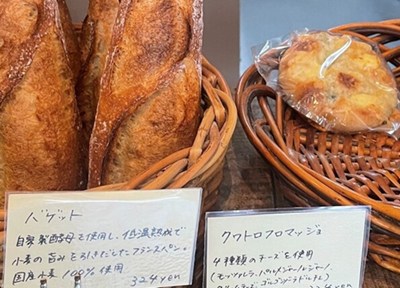 バゲット
自家製酵母を使用し、低温熟成で
小麦の旨みを引きだしたフランスパン。
国産小麦100%使用
324yen
クワトロフロマッジョ
4種類のチーズを使用
(モッツァレラ、パルミジャーノレジャーノ
324yen